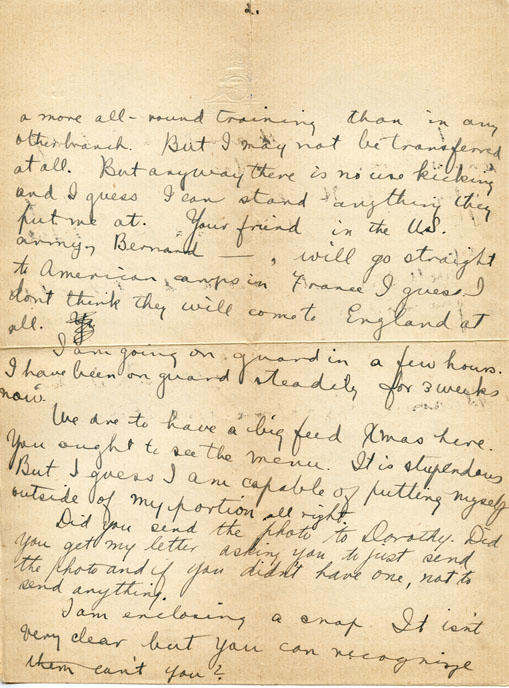 2.
a more all-round training than in any
other branch. But I may not be transferred
at all. But anyway there is no use kicking
and I guess I can stand anything they
put me at. Your friend in the U.S.
army, Bernard —, will go straight
to American camps in France I guess. I
don't think they will come to England at
all.
I am going on guard in a few hours.
I have been on guard steadily for 3 weeks
now.
We are to have a big feed Xmas here.
You ought to see the menu. It is stupendous
But I guess I am capable of putting myself
outside of my portion all right.
Did you send the photo to Dorothy. Did
you get my letter asking you to just send
the photo and if you didn't have one, not to
send anything.
I am enclosing a snap. It isn't
very clear but you can recognize
them can't you?